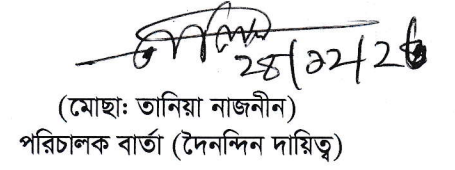 ২৪/১২/২৫
(মোছা: তানিয়া নাজনীন)
পরিচালক বার্তা (দৈনন্দিন দায়িত্ব)